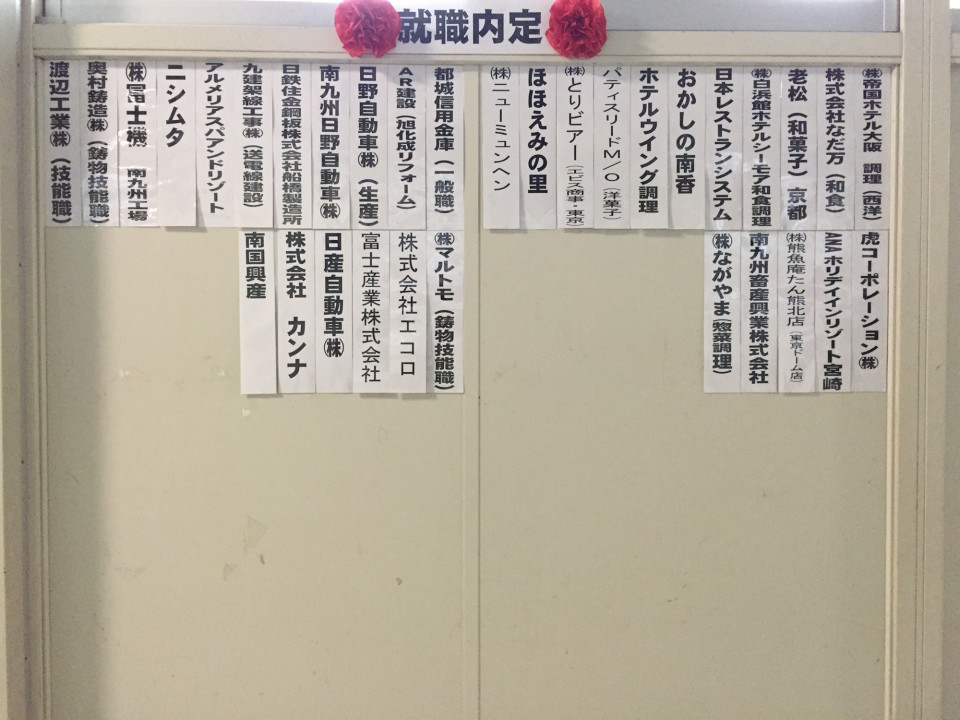 就職内定
㈱帝国ホテル大阪 調理（西洋）
株式会社なだ万（和食）
老松（和菓子）京都
㈱白浜館ホテルシーモア和食調理
日本レストランシステム
おかしの南香
ホテルウイング調理
パティスリードM／O（洋菓子）
㈱とりビアー（エビス商事・東京）
ほほえみの里
㈱ニューミュンヘン
虎コーポレーション㈱
ANAホリデイインリゾート宮崎
㈱熊魚庵たん熊北店（東京ドーム店）
南九州畜産興業株式会社
㈱ながやま（惣菜調理）
都城信用金庫（一般職）
AR建設（旭化成リフォーム）
日野自動車㈱（生産）
南九州日野自動車㈱
日鉄住金鋼板株式会社船橋製造所
九建架線工事㈱（送電線建設）
アルメリアスパアンドリゾート
ニシムタ
㈱冨士機 南九州工場
奥村鋳造㈱（鋳物技能職）
渡辺工業㈱（技能職）
㈱マルトモ（鋳物技能職）
株式会社エコロ
富士産業株式会社
日産自動車㈱
株式会社 カンナ
南国興産